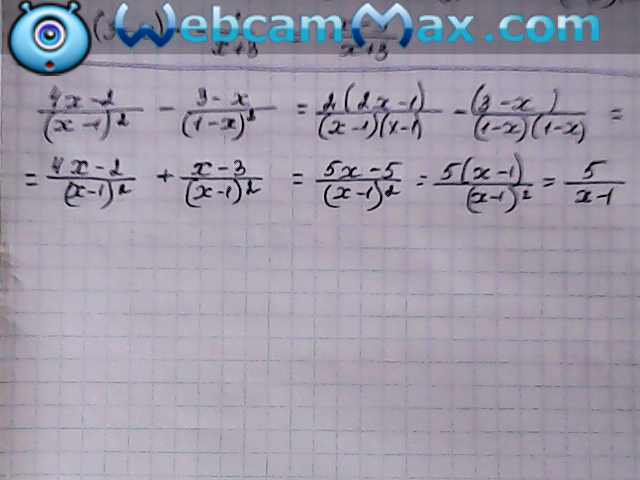 WebcamMax.com
x+3 = x+3
(4x-2)/(x-1)² - (3-x)/(1-x)² = 2(2x-1)/(x-1)(x-1) - (3-x)/(1-x)(1-x) =
= (4x-2)/(x-1)² + (x-3)/(x-1)² = (5x-5)/(x-1)² = 5(x-1)/(x-1)² = 5/(x-1)